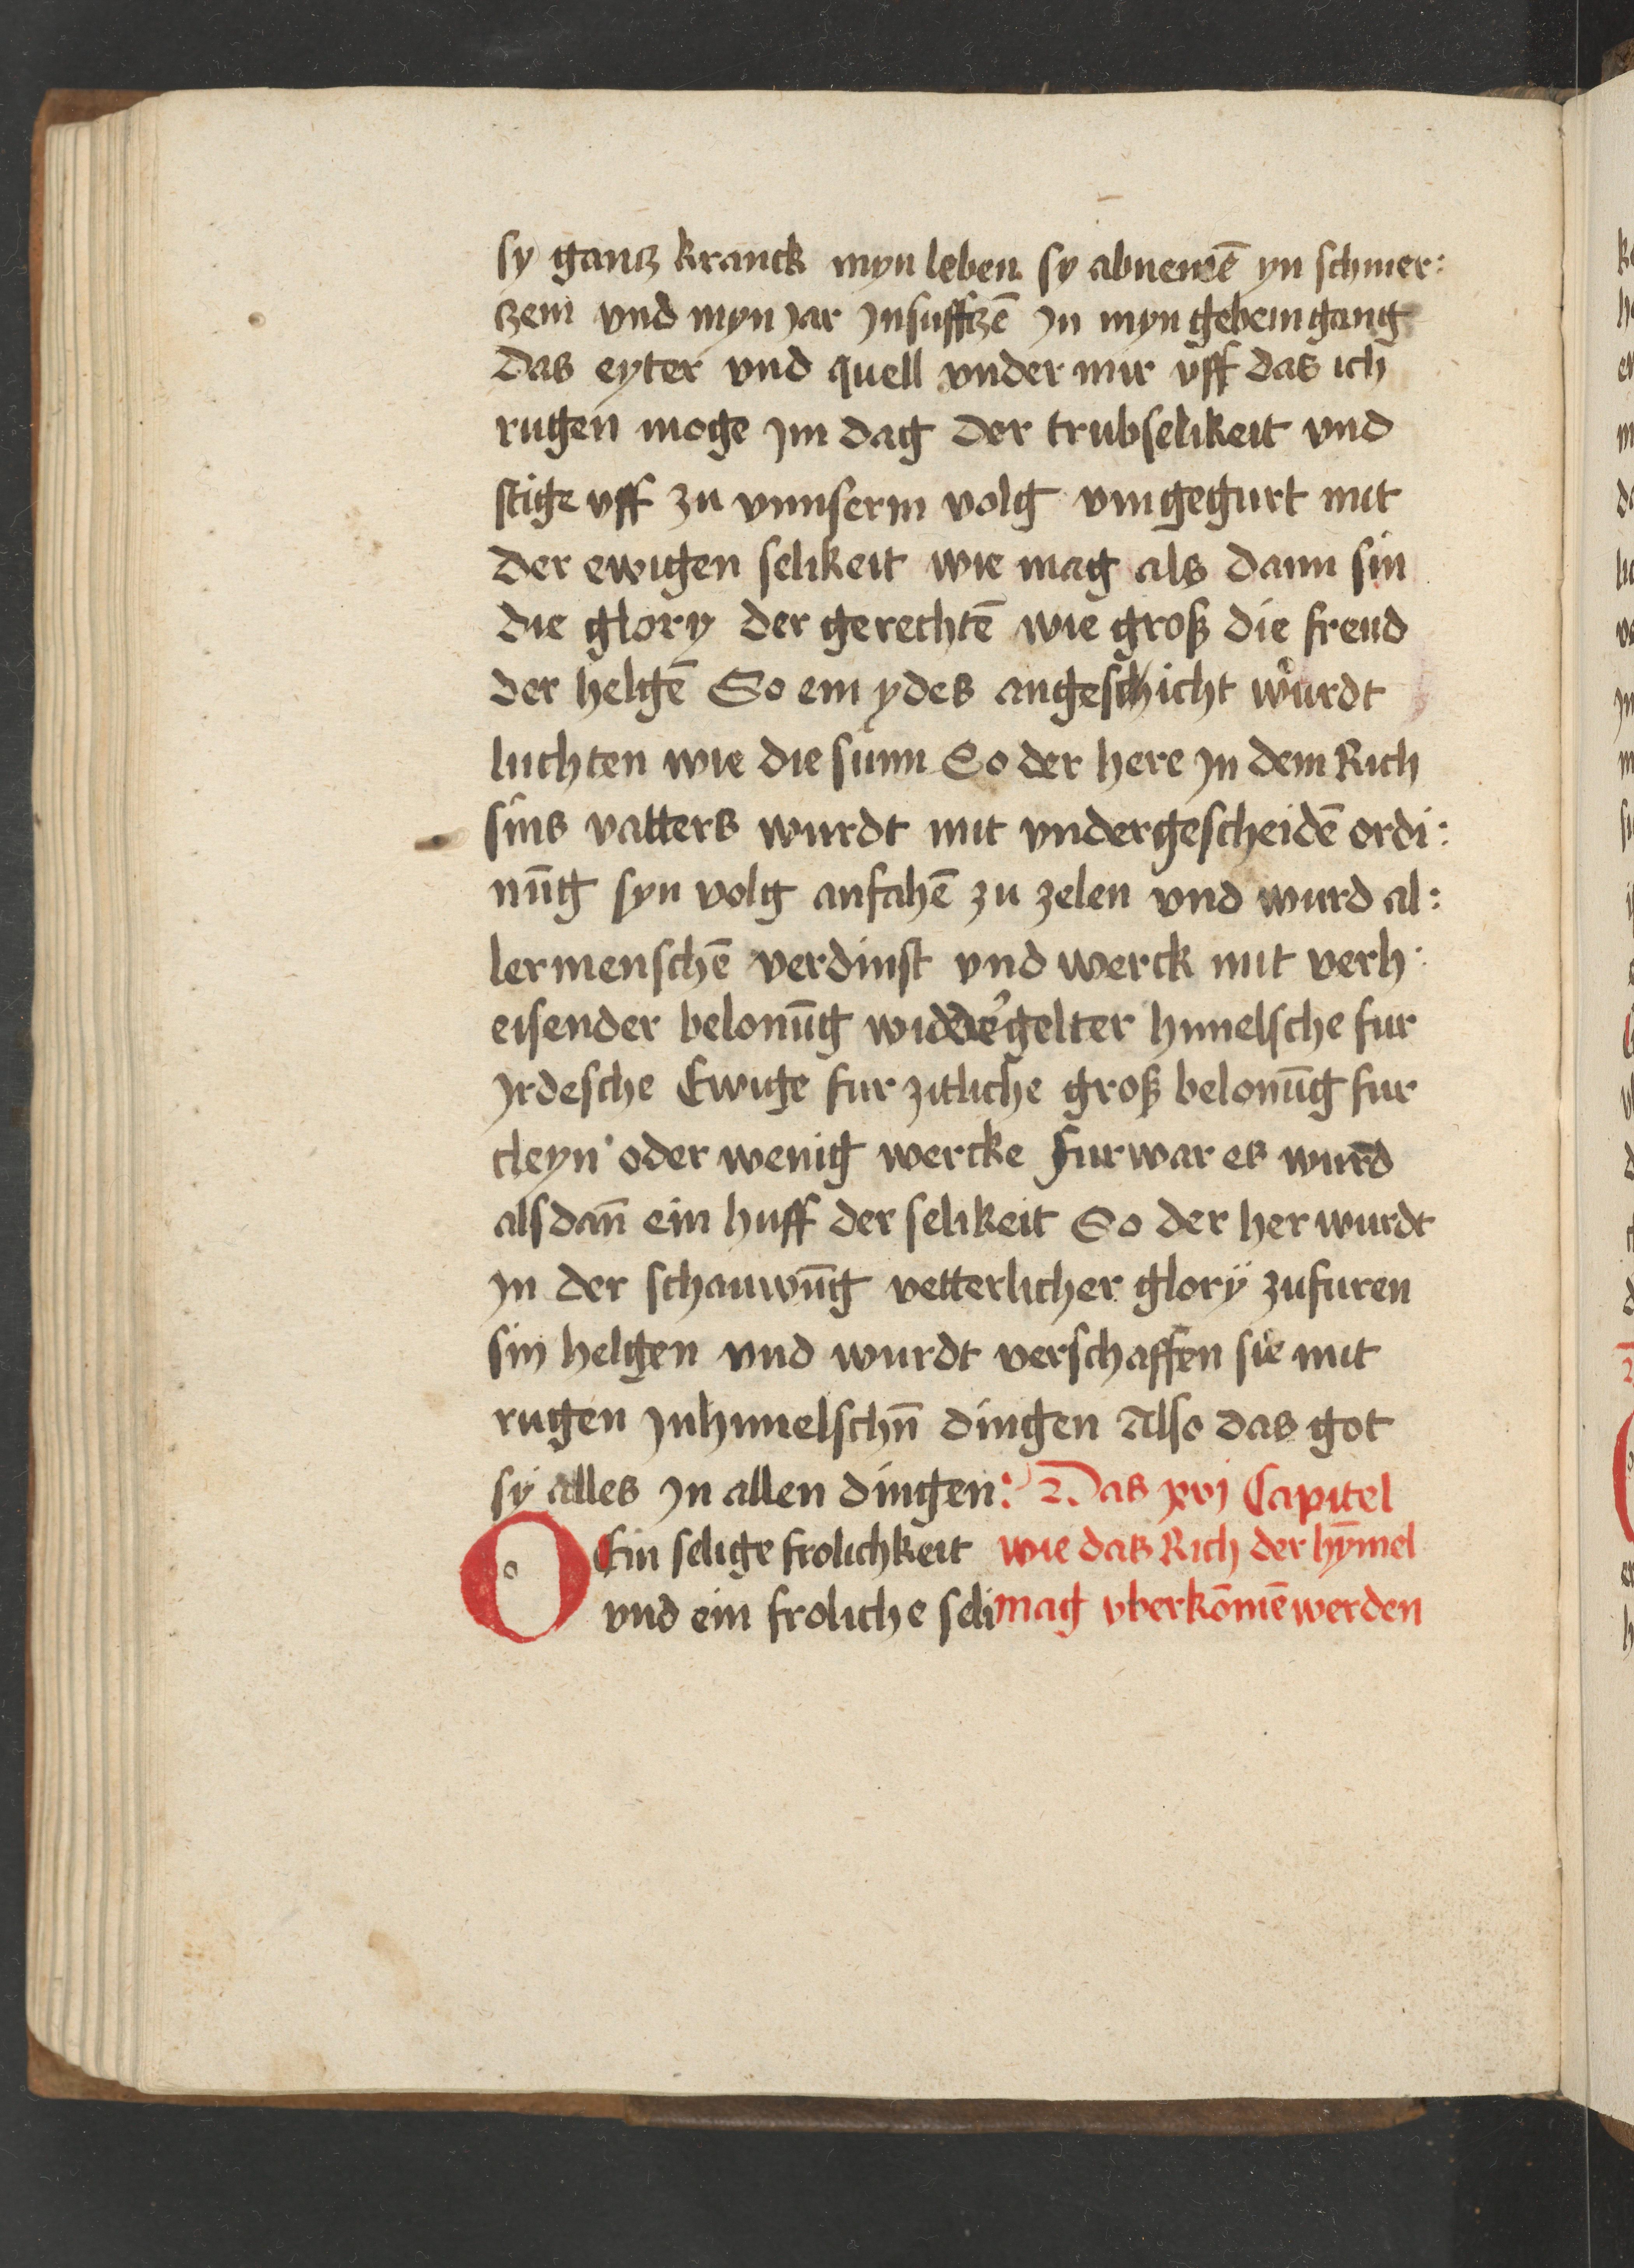 sy gantz kranck myn leben sy abnemē yn schmer:
tzem vnd myn jar jnsufftzē jn myn gebein gang
das eyter vnd quell vnder mir vff das ich
rugen moge jm dag der trubselikeit vnd
stige vff zu vnnserm volg vmgegurt mit
der ewigen selikeit wie mag als dann sin
die glory der gerechtē wie groß die freud
der helgē So ein ydes angeschicht wurdt
luchten wie die sunn So der here jn dem Rich
sins vatters wurdt mit vndergescheidē ordi:
nūg syn volg anfahē zu zelen vnd wurd al:
lermenschē verdinst vnd werck mit verh:
eisender belonūg widdergelter himelsche fur
jrdesche Ewige fur zitliche groß belonūg fur
cleyn oder wenig wercke furwar es wurd
alsdan̄ ein huff der selikeit So der her wurdt
jn der schauwūg vetterlicher glorÿ zufuren
sin helgen vnd wurdt verschaffen sie mit
rugen jnhimelschn̄ dingen Also das got
sy alles jn allen dingen: Das xvj Capitel
O Ein selige frolichkeit wie das Rich der hȳmel
vnd ein froliche seli mag vberkōmē werden